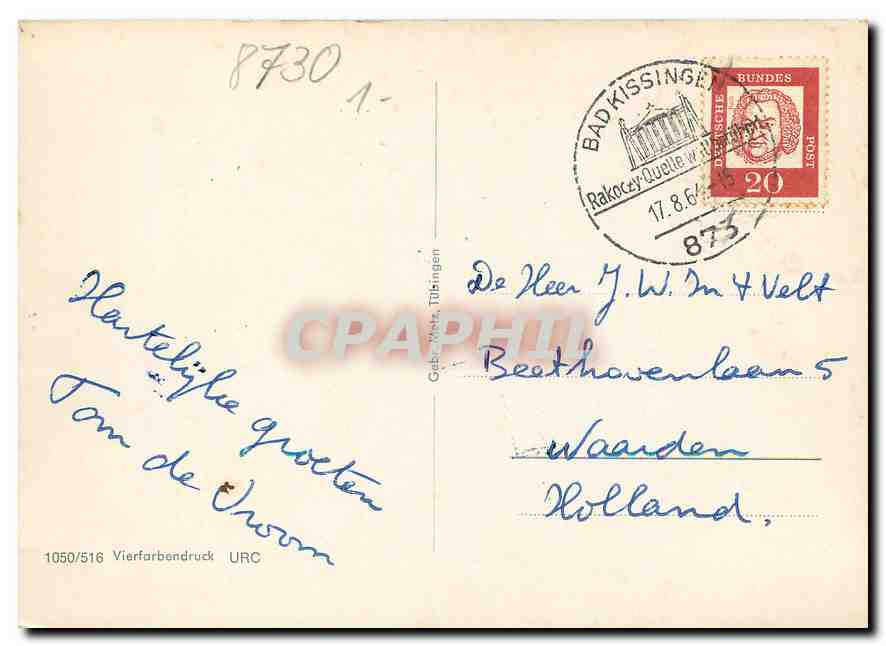 8730
1.-
BAD KISSINGEN
Rakoczy-Quelle
17.8.64-15
873
DEUTSCHE
BUNDES
POST
20
De Heer J. W. In 't Velt
Beethovenlaan 5
Naarden
Holland.
Hartelijke groeten
Tom de Vroom
Gebr. Metz, Tübingen
CPAPHIL
1050/516 Vierfarbendruck URC